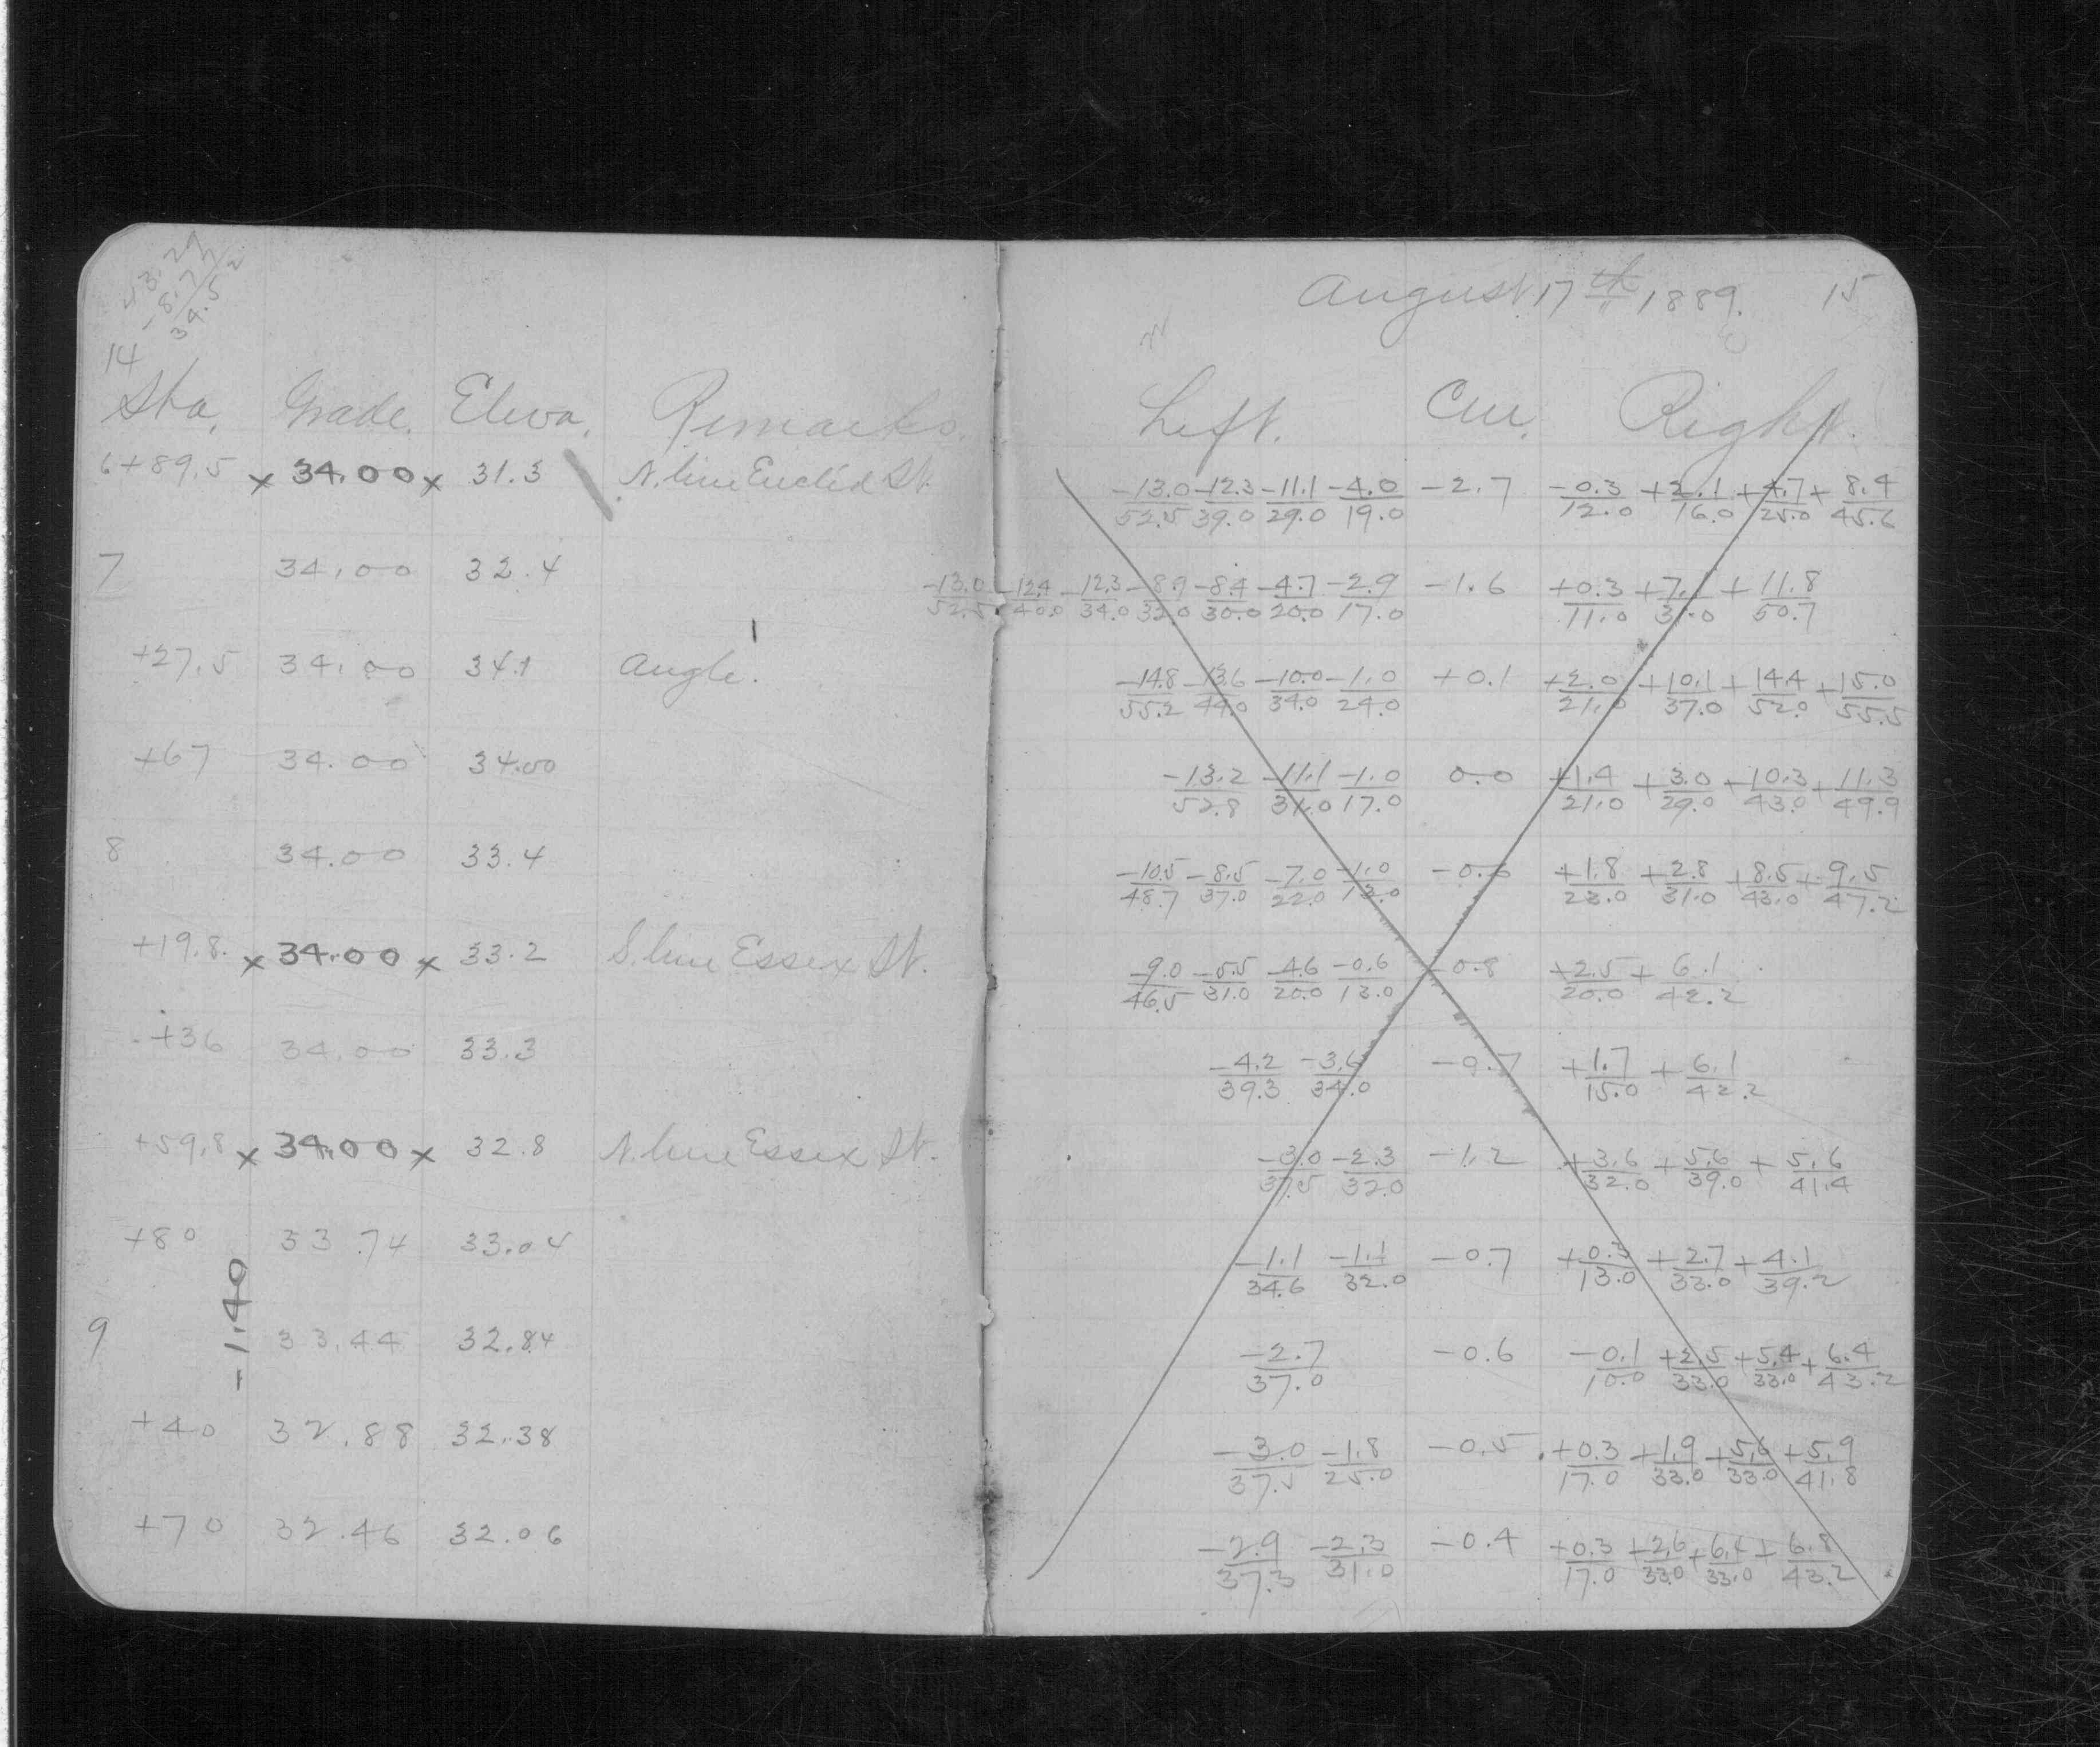 14
Sta. Grade. Eleva. Remarks.
6+89.5 x 34.00 x 31.3 N. line Euclid St.
7 34.00 32.4
+27.5 34.00 34.1 Angle.
+67 34.00 34.00
8 34.00 33.4
+19.8 x 34.00 x 33.2 S. line Essex St.
+36 34.00 33.3
+59.8 x 34.00 x 32.8 N. line Essex St.
+80 33.74 33.04
-1.40
9 33.44 32.84
+40 32.88 32.38
+70 32.46 32.06
August 17th 1889. 15
Left. Cen. Right.
-13.0/52.5 -12.3/39.0 -11.1/29.0 -4.0/19.0 -2.7 -0.3/12.0 +2.1/16.0 +4.7/25.0 +8.4/45.6
-13.0/52.5 -12.4/40.0 -12.3/34.0 -8.9/32.0 -8.4/30.0 -4.7/20.0 -2.9/17.0 -1.6 +0.3/11.0 +11.8/50.7
-14.8/55.2 -13.6/44.0 -10.0/34.0 -1.0/24.0 +0.1 +2.0/21.0 +10.1/37.0 +14.4/52.0 +15.0/55.5
-13.2/52.8 -11.1/31.0 -1.0/17.0 0.0 +1.4/21.0 +3.0/29.0 +10.3/43.0 +11.3/49.9
-10.5/48.7 -8.5/37.0 -7.0/22.0 -1.0/12.0 -0.6 +1.8/23.0 +2.8/31.0 +8.5/43.0 +9.5/47.2
-9.0/46.5 -5.5/31.0 -4.6/20.0 -0.6/13.0 -0.8 +2.5/20.0 +6.1/42.2
-4.2/39.3 -3.6/34.0 -0.7 +1.7/15.0 +6.1/42.2
-3.0/37.5 -2.3/32.0 -1.2 +3.6/32.0 +5.6/39.0 +5.6/41.4
-1.1/34.6 -1.1/32.0 -0.7 +0.3/13.0 +2.7/33.0 +4.1/39.2
-2.7/37.0 -0.6 -0.1/10.0 +2.5/33.0 +5.4/33.0 +6.4/43.2
-3.0/37.5 -1.8/25.0 -0.5 +0.3/17.0 +1.9/33.0 +5.6/33.0 +5.9/41.8
-2.9/37.3 -2.3/31.0 -0.4 +0.3/17.0 +2.6/33.0 +6.4/33.0 +6.8/43.2